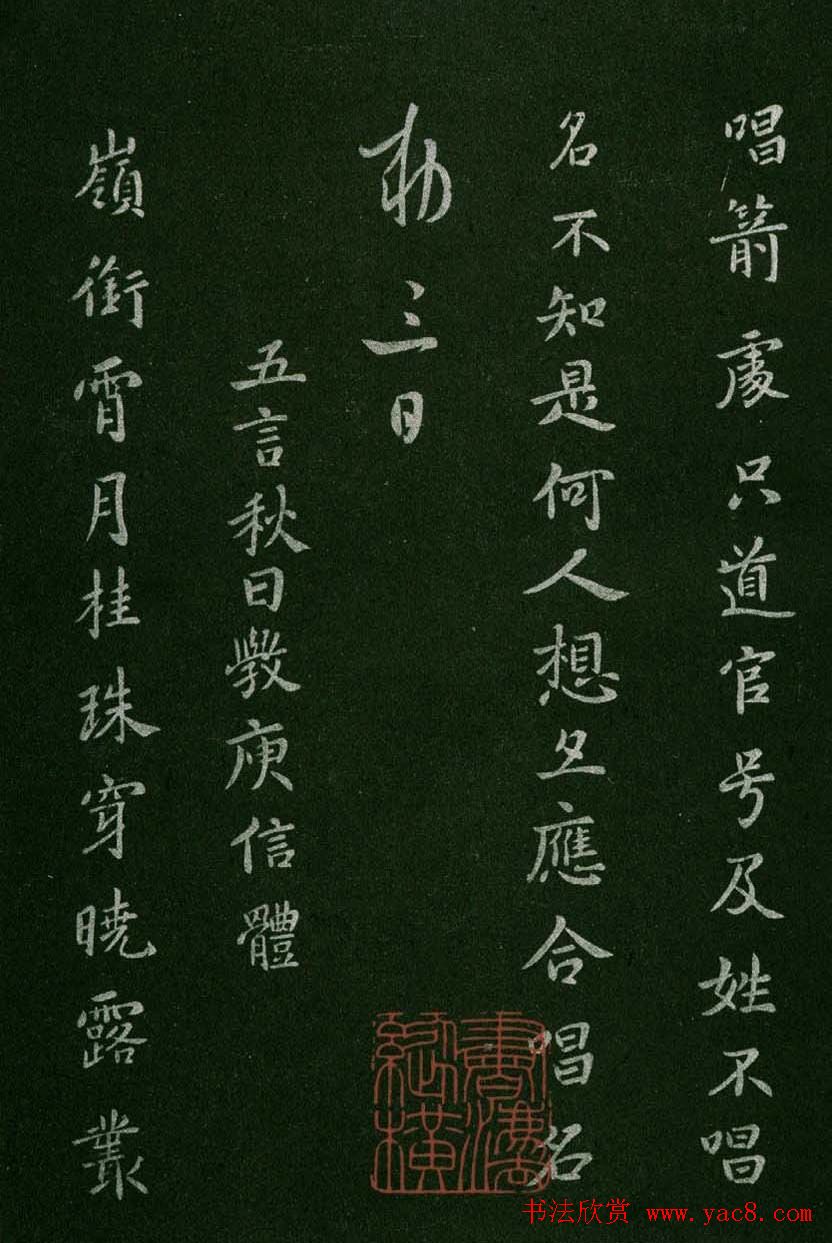 唱箭處只道官号及姓不唱
名不知是何人想且應合唱名
勅 三日
五言秋日斆庾信體
嶺銜霄月桂珠穿曉露叢
书法欣赏 www.yac8.com